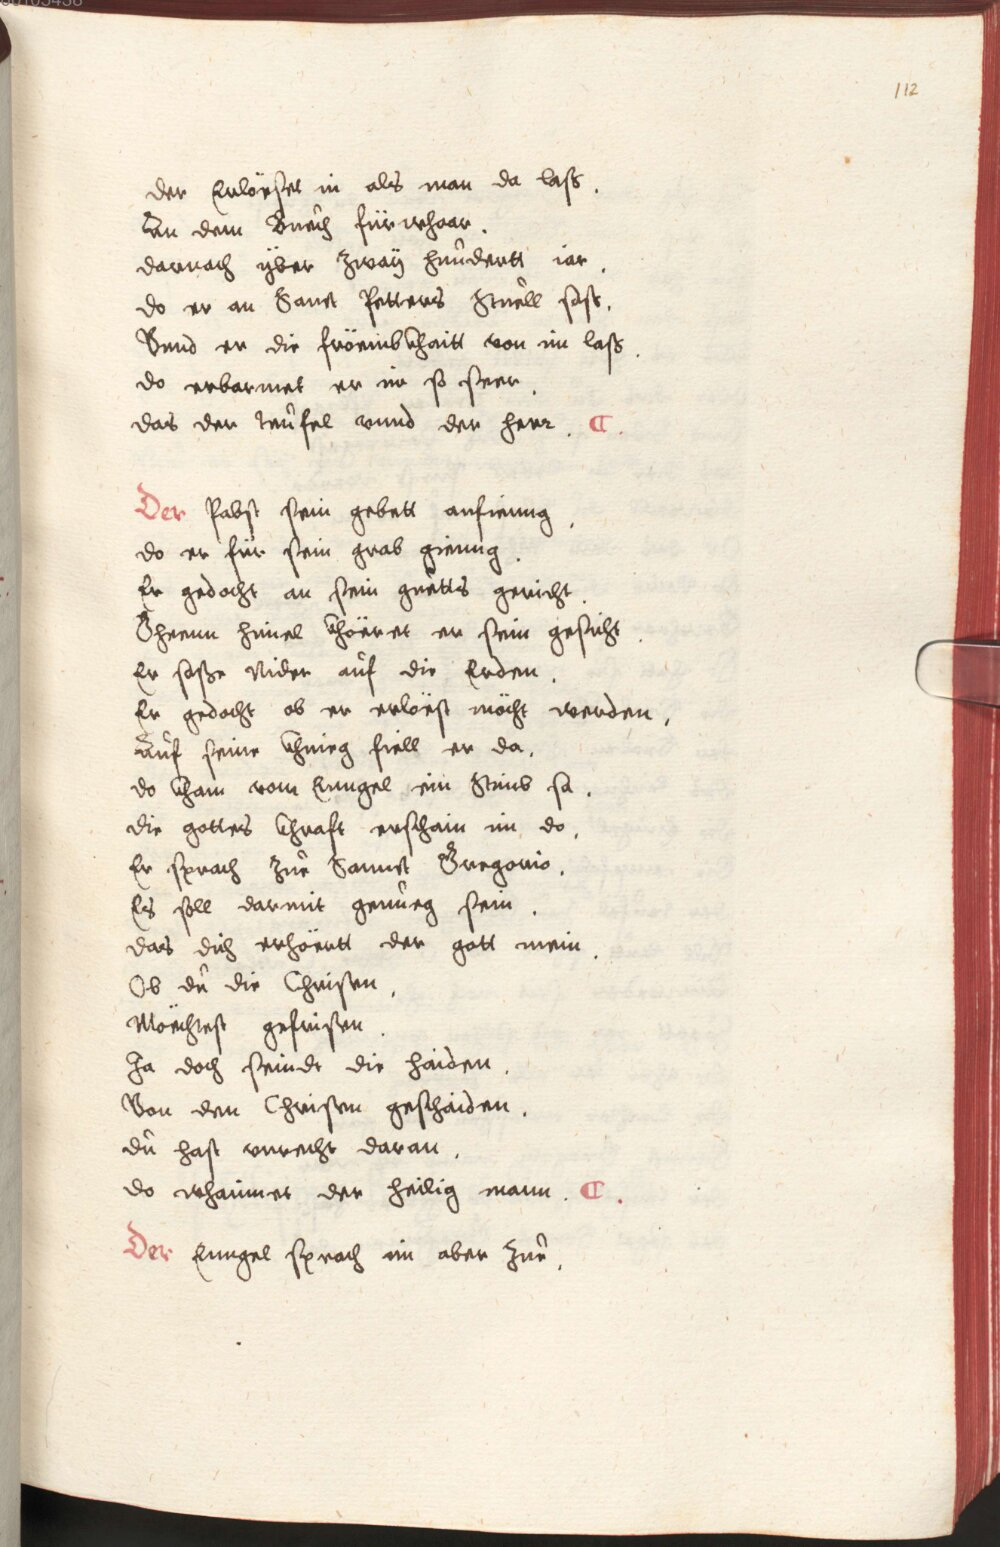 112
der Erlöeßet in als man da laß.
An dem Buech fürwhaar.
darnach yber zway hundertt iar.
do er an Sanct Petters Stuell saß.
Vnnd er die fröembkhaitt von im laß.
do erbarmet er in so seer.
das der teufel vnnd der herr. C.
Der Pabst sein gebett anfienng,
do er für sein grab gienng.
Er gedacht an sein guetts gericht.
Gheenn himel khöeret er sein gesicht.
Er saße Nider auf die Erden.
Er gedacht ob er erlöest möcht werden,
Auf seine khnieg fiell er da.
do kham vom Enngel ein Stimb sa.
die gottes khraft erschain im do,
Er sprach zue Sannct Gregorio.
Es soll darmit genueg sein.
das dich erhöertt der gott mein.
Ob du die Christen,
Möechtest gefristen.
Ja doch seindt die haiden.
Von den Christen geschaiden.
du hast vnrecht daran.
do whainnet der heilig mann. C.
Der Enngel sprach im aber zue,